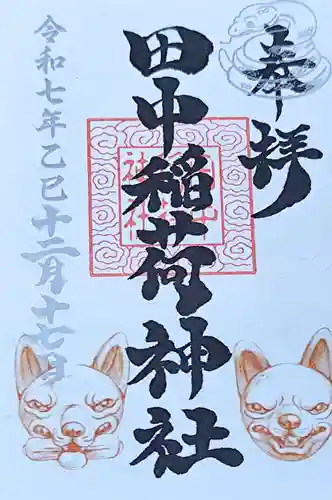 奉拝
田中稲荷神社
令和七年乙巳十二月十七日